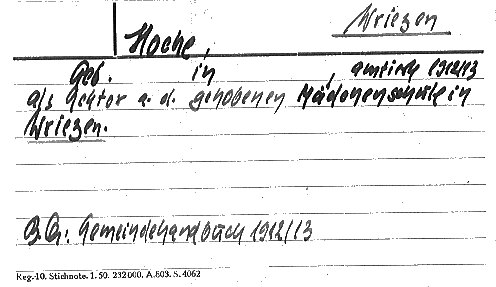 Wriezen
Hoche,
Geb. in , amtirte 1912/13
als Rektor a. d. gehobenen Mädchenschule in
Wriezen.
B.Q.: Gemeindehandbuch 1912/13
Reg.-10. Stichnote. 1. 50. 232 000. A.803. S. 4062